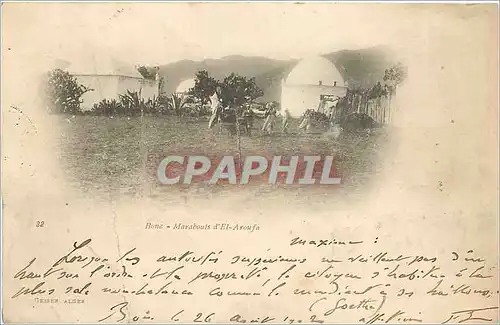 CPAPHIL.COM
32
Bone - Marabouts d'El-Aroufa
Maxime :
Lorsque les autorités supérieures ne veillent pas d'en
haut sur l'ordre et la propreté, le citoyen s'habitue à la
plus sale comme le mendiant à ses haillons.
GEISER ALGER
(Goethe)
Bône le 26 Août